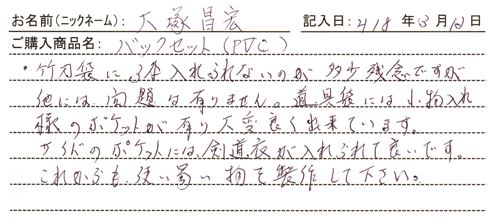 お名前(ニックネーム): 大塚昌宏 記入日: H18 年 3 月 12 日
ご購入商品名: バックセット(PVC)
・竹刀袋に3本入れられないのが多少残念ですが
他には問題は有りません。道具袋には小物入れ
様のポケットが有り大変良く出来ています。
サイドのポケットには、剣道衣が入れられて良いです。
これからも、使い易い物を製作して下さい。